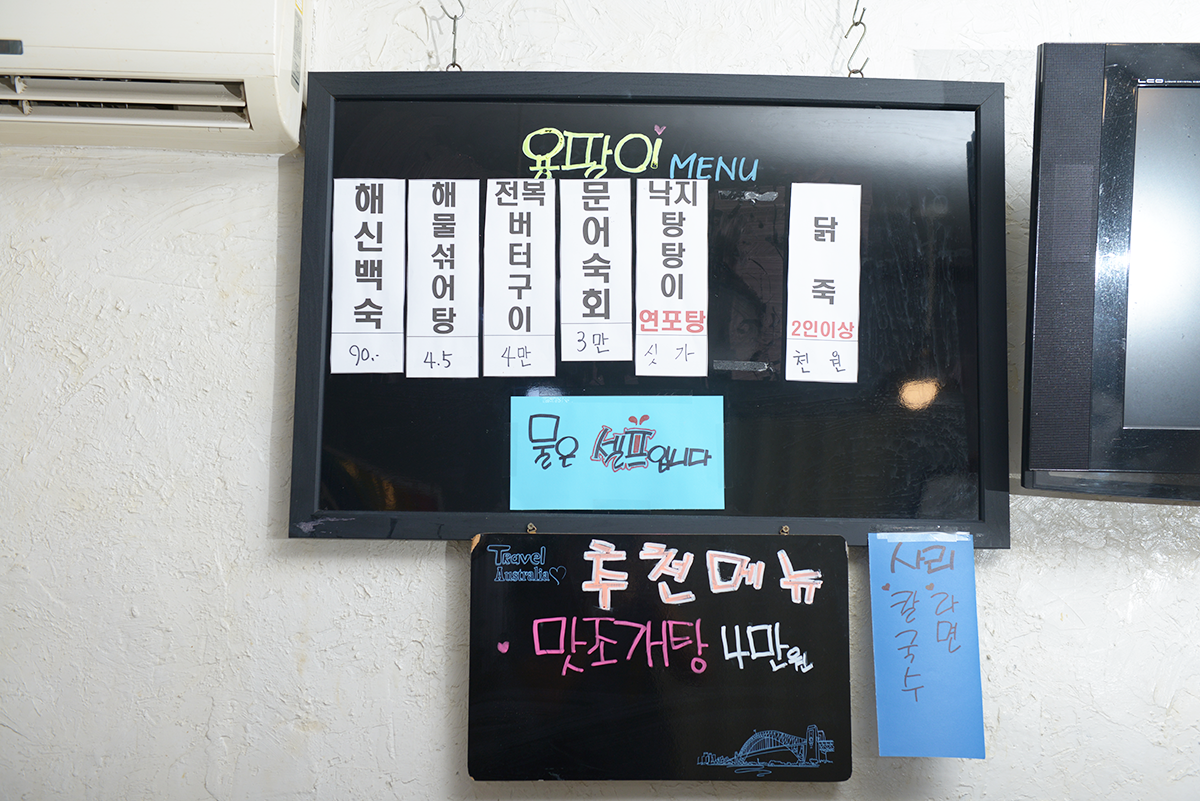 용팡이 MENU
해신백숙
90.-
해물섞어탕
4.5
전복버터구이
4만
문어숙회
3만
낙지탕탕이
연포탕
싯가
닭죽
2인이상
천원
물은 셀프입니다
Travel
Australia
추천메뉴
맛조개탕 4만원
사리
칼국수
라면